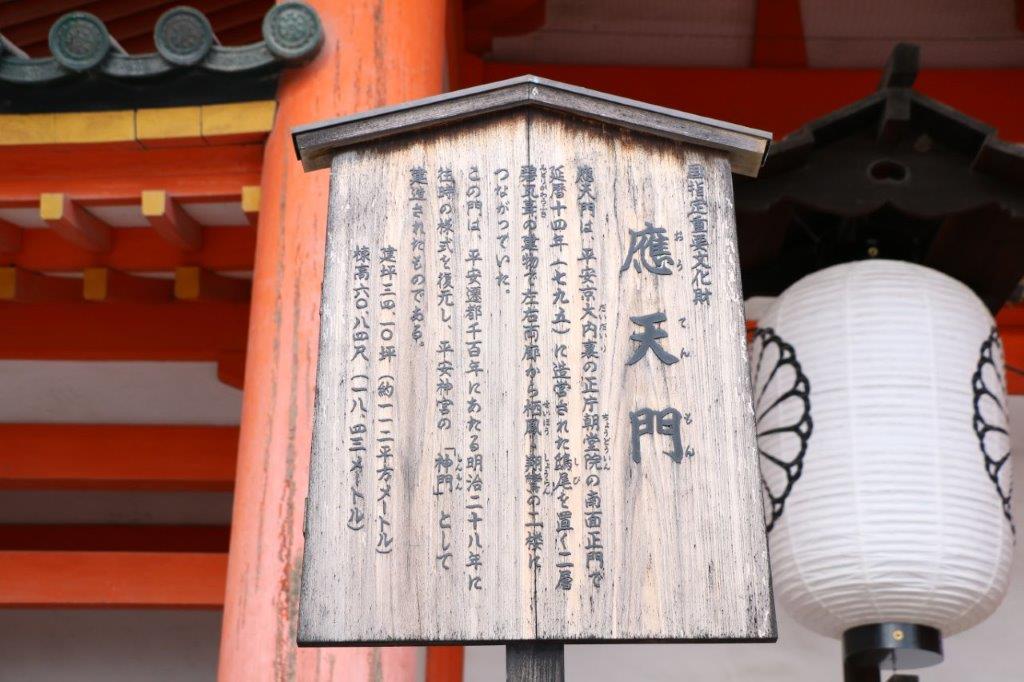 国指定重要文化財
應天門
おうてんもん
應天門は、平安京大内裏の正庁朝堂院の南面正門で
だいだいり
ちょうどういん
延暦十四年(七九五)に造営された鴟尾を置く二層
しび
碧瓦葺の建物で左右両廊から栖鳳・翔鸞の二楼に
せいほう
しょうらん
つながっていた。
この門は、平安遷都千百年にあたる明治二十八年に
往時の様式を復元し、平安神宮の「神門」として
しんもん
建造されたものである。
建坪三四、一〇坪(約一一二平方メートル)
棟高六〇、八四尺(一八、四三メートル)